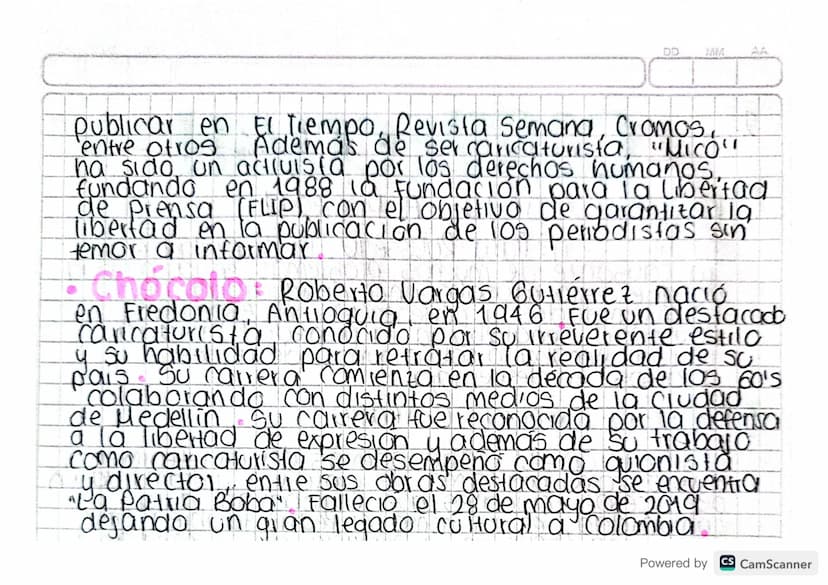 DD MM AA
publicar en El Tiempo, Revista Semana, Cromos,
entre otros. Además de ser caricaturista, "Mico"
ha sido un activista por los derechos humanos,
fundando en 1988 la Fundación para la Libertad
de Prensa (FLIP), con el objetivo de garantizar la
libertad en la publicación de los periodistas sin
temor a informar.
• Chócolo: Roberto Vargas Gutiérrez nació
en Fredonia, Antioquia, en 1946. Fue un destacado
caricaturista conocido por su irreverente estilo
y su habilidad para retratar la realidad de su
país. Su carrera comienza en la década de los 60's
colaborando con distintos medios de la ciudad
de Medellín. Su carrera fue reconocida por la defensa
a la libertad de expresión y además de su trabajo
como caricaturista se desempeñó como guionista
y director, entre sus obras destacadas se encuentra
"La Patria Boba". Falleció el 28 de mayo de 2019
dejando un gran legado cultural a Colombia.
Powered by CS CamScanner